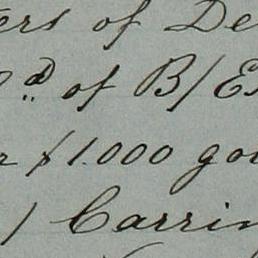 ers of De
d of B/E
r $1.000 go
/ Carrin